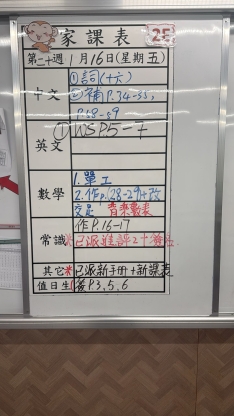 家課表 25
第二十週 1月16日(星期五)
中文 ①詞(十六)
②補P.34-35,
P.58-59
英文 ①WSP.5-7
數學 1.單工
2.作p.28-29+改
交足
常識 作P.16-17
*已派進評2
其它 *已派新手冊+新課表
值日生 P.3,5,6